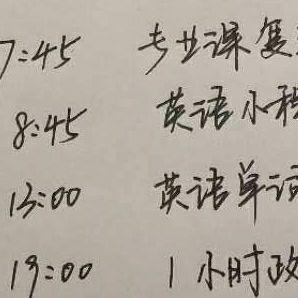 7:45 专业课复
8:45 英语小
13:00 英语单词
19:00 1小时政